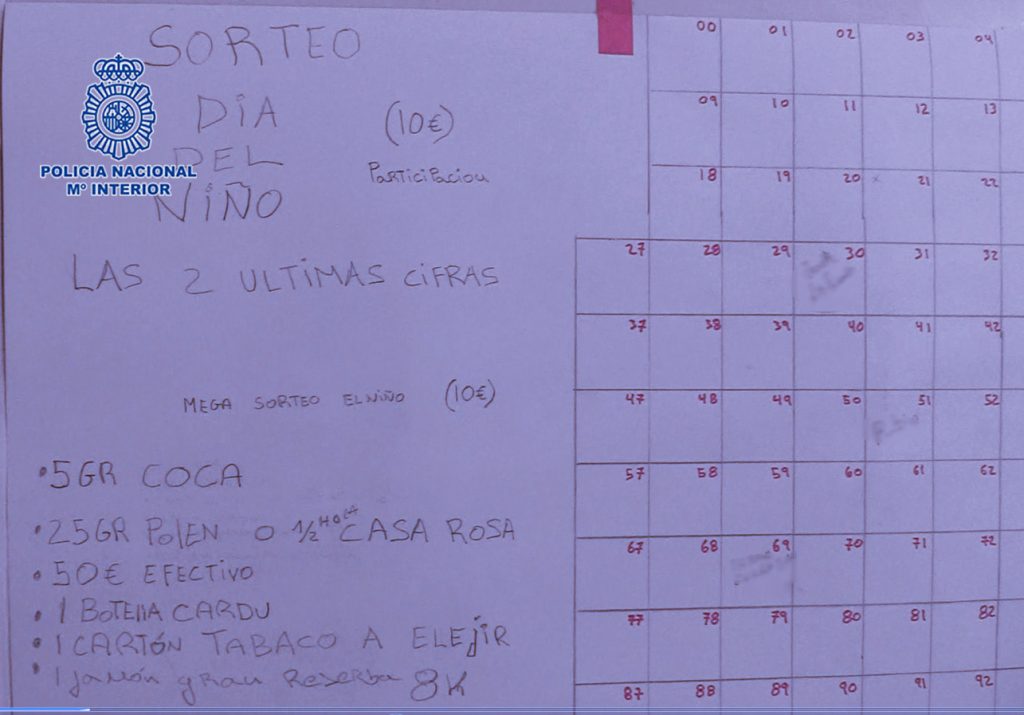 SORTEO
DiA
DEL
NiÑO
(10€)
Participacion
POLICIA NACIONAL
Mº INTERIOR
LAS 2 ULTIMAS CiFRAS
MEGA SORTEO EL NiÑO (10€)
•5GR COCA
•25GR POlEN O 1/2 CASA ROSA
•50€ EFECTIVO
•1 BOTEllA CARDU
•1 CARTÓN TABACO A ELEJiR
•1 Jamón gran Reserba 8K
00 01 02 03 04
09 10 11 12 13
18 19 20 21 22
27 28 29 30 31 32
37 38 39 40 41 42
47 48 49 50 51 52
57 58 59 60 61 62
67 68 69 70 71 72
77 78 79 80 81 82
87 88 89 90 91 92